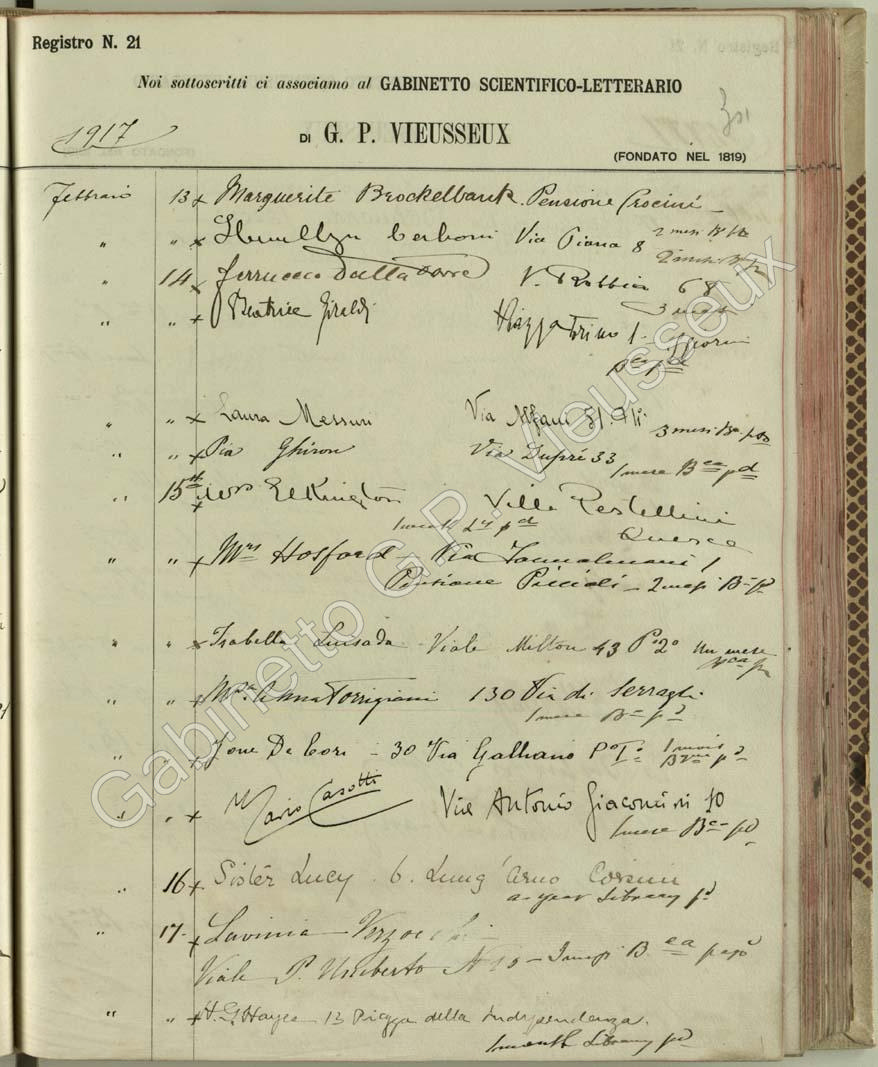 Registro N. 21
Noi sottoscritti ci associamo al GABINETTO SCIENTIFICO-LETTERARIO
1917
DI G. P. VIEUSSEUX
(FONDATO NEL 1819)
Febbraio 13 x Marguerite Brockelbank. Pensione Crocini
" " x Cerboni Via Piana 8 2 mesi
" 14 x Ferruccio Dalla Torre V. Robbia 68
3 mesi
" " x Beatrice Giraldi Piazza Torino 1
" " x Laura Via Alfani 31. 3 mesi
" " x Pia Ghiron Via Dupré 33
1 mese Bca pd
" 15 x Mrs Elkington Villa Pestellini
1 month Ly pd Querce
" " x Mrs Hosford - Via 1
Pensione Piccioli - 2 mesi B pd
" " x Isabella Lusada Viale Milton 43 Po 2o Un mese
" " x Anna Torrigiani 130 Via di Serragli
1 mese Ba pd
" " x Jone De Cori - 30 Via Galliano Po Io 1 mois
" " x Mario Casotti Via Antonio Giacomini 10
1 mese Bca pd
" 16 x Sister Lucy. 6. Lung'Arno Corsini
a year Library pd
" 17 x Lavinia
Viale P. Umberto N 10 - B.ca
" " x H. G. Hayes 13 Piazza della Independenza.
1 month Library pd
Gabinetto G.P. Vieusseux